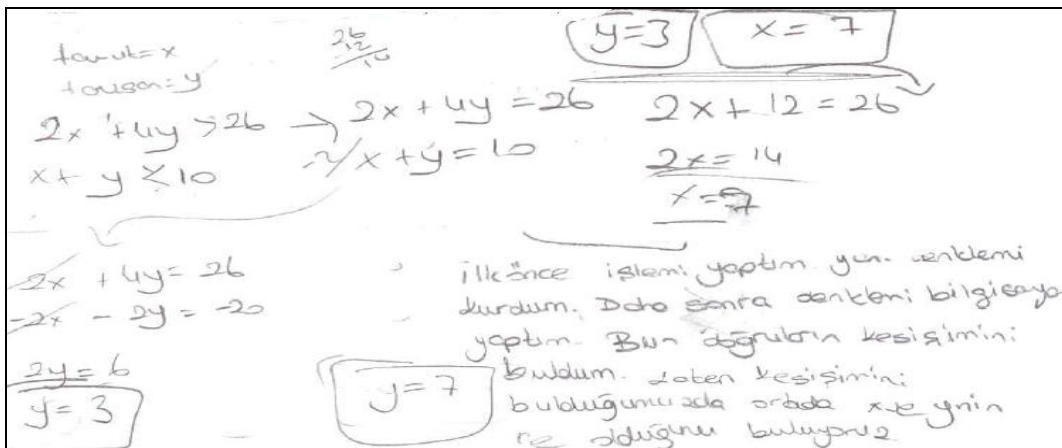 tavuk=x
tavşan=y
26
12
y=3
x=7
2x+4y>26 → 2x+4y=26
x+y<10
-2/x+y=10
2x+12=26
2x=14
x=7
2x+4y=26
-2x-2y=-20
2y=6
y=3
y=7
ilk önce işlemi yaptım yani denklemi
kurdum. Daha sonra denklemi bilgisaya
yaptım. Bun doğruların kesişimini
buldum. zaten kesişimini
bulduğumuzda ortada x ve ynin
ne olduğunu buluyoruz